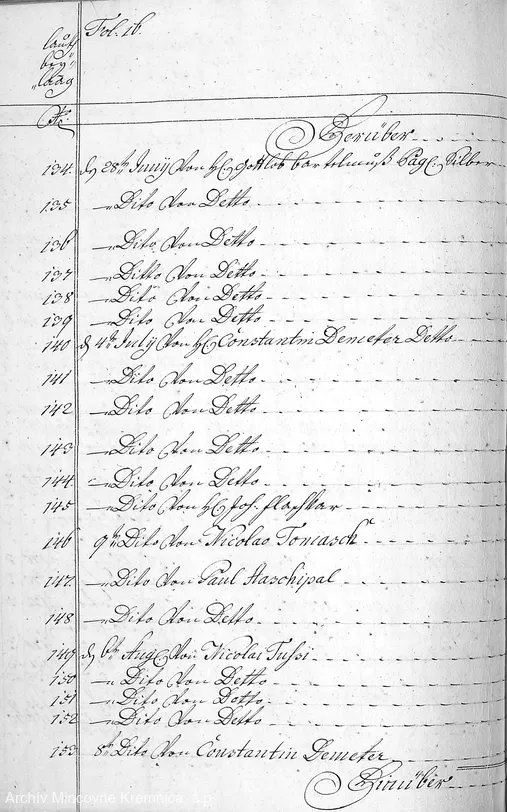 Fol. 16.
lauth
bey-
laag
No.
Herüber
134. d. 28ten Junij Von H. Gottlob bartelmuß Pag. Silber
135 — Dito Von Detto
136 — Dito Von Detto
137 — Ditto Von Detto
138 — Dito Von Detto
139 — Dito Von Detto
140 d. 4ten Julij Von H. Constantin Demeter Detto
141 — Dito Von Detto
142 — Dito Von Detto
143 — Dito Von Detto
144. — Dito Von Detto
145 — Dito Von H. Joh.
146 9ten Dito Von Nicolao Tomasch
147. — Dito Von Paul Haschipal
148 — Dito Von Detto
149 d. 6ten Aug. Von Nicolai Tussi
150 — Dito Von Detto
151 — Dito Von Detto
152 — Dito Von Detto
153 8ten Dito Von Constantin Demeter
Hinüber
Archiv Mincovne Kremnica, š.p.